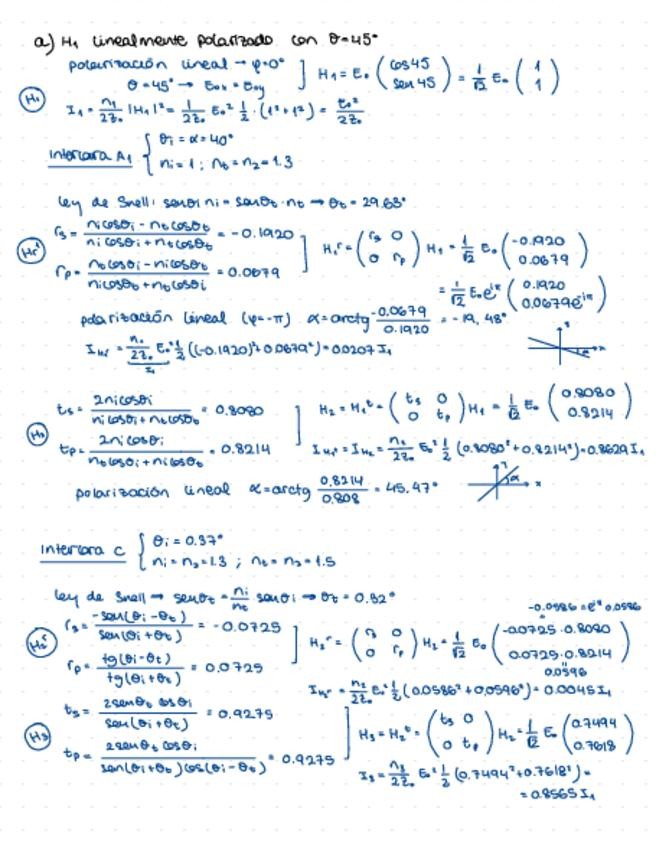 a) H₁ linealmente polarizado con θ=45°
polarización lineal → φ=0°
θ=45° → E₀ₓ = E₀y ] H₁ = E₀ (cos45 sen45) = 1/√2 E₀ (1 1)
H₁
I₁ = n₁/2Z₀ |H₁|² = 1/2Z₀ E₀² 1/2 · (1²+1²) = E₀²/2Z₀
Intercara A₁ { θi = α = 40°
ni = 1 ; nt = n₂ = 1.3
ley de Snell: senθi ni = senθt · nt → θt = 29.63°
H₁ʳ
rs = (ni cosθi - nt cosθt)/(ni cosθi + nt cosθt) = -0.1920
rp = (nt cosθi - ni cosθt)/(ni cosθt + nt cosθi) = 0.0679
] H₁ʳ = (rs 0 0 rp) H₁ = 1/√2 E₀ (-0.1920 0.0679)
= 1/√2 E₀ e^iπ (0.1920 0.0679e^iπ)
polarización lineal (φ=-π) α = arctg -0.0679/0.1920 = -19,48°
I = n₁/2Z₀ E₀² 1/2 ((-0.1920)²+0.0679²) = 0.0207 I₁
I₁
H₂
ts = 2ni cosθi/(ni cosθi + nt cosθt) = 0.8080
tp = 2ni cosθi/(nt cosθi + ni cosθt) = 0.8214
] H₂ = H₁ᵗ = (ts 0 0 tp) H₁ = 1/√2 E₀ (0.8080 0.8214)
I = I = n₁/2Z₀ E₀² 1/2 (0.8080²+0.8214²) = 0.8629 I₁
polarización lineal α = arctg 0.8214/0.808 = 45.47°
α x
Intercara C { θi = 0.37°
ni = n₂ = 1.3 ; nt = n₃ = 1.5
ley de Snell → senθt = ni/nt senθi → θt = 0.32°
-0.0586 = e^iπ 0.0586
H₂ʳ
rs = -sen(θi-θt)/sen(θi+θt) = -0.0725
rp = tg(θi-θt)/tg(θi+θt) = 0.0725
] H₂ʳ = (rs 0 0 rp) H₂ = 1/√2 E₀ (-0.0725 · 0.8080 0.0725 · 0.8214)
0.0596
I = n₂/2Z₀ E₀² 1/2 (0.0586²+0.0596²) = 0.0045 I₁
H₃
ts = 2senθt cosθi/sen(θi+θt) = 0.9275
tp = 2senθt cosθi/(sen(θi+θt)cos(θi-θt)) = 0.9275
] H₃ = H₂ᵗ = (ts 0 0 tp) H₂ = 1/√2 E₀ (0.7494 0.7618)
I₃ = n₃/2Z₀ E₀² 1/2 (0.7494²+0.7618²) =
= 0.8565 I₁